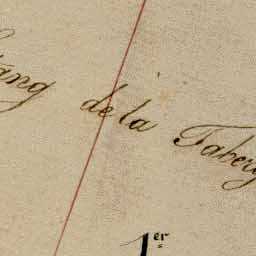 tang de la Taberg
1er